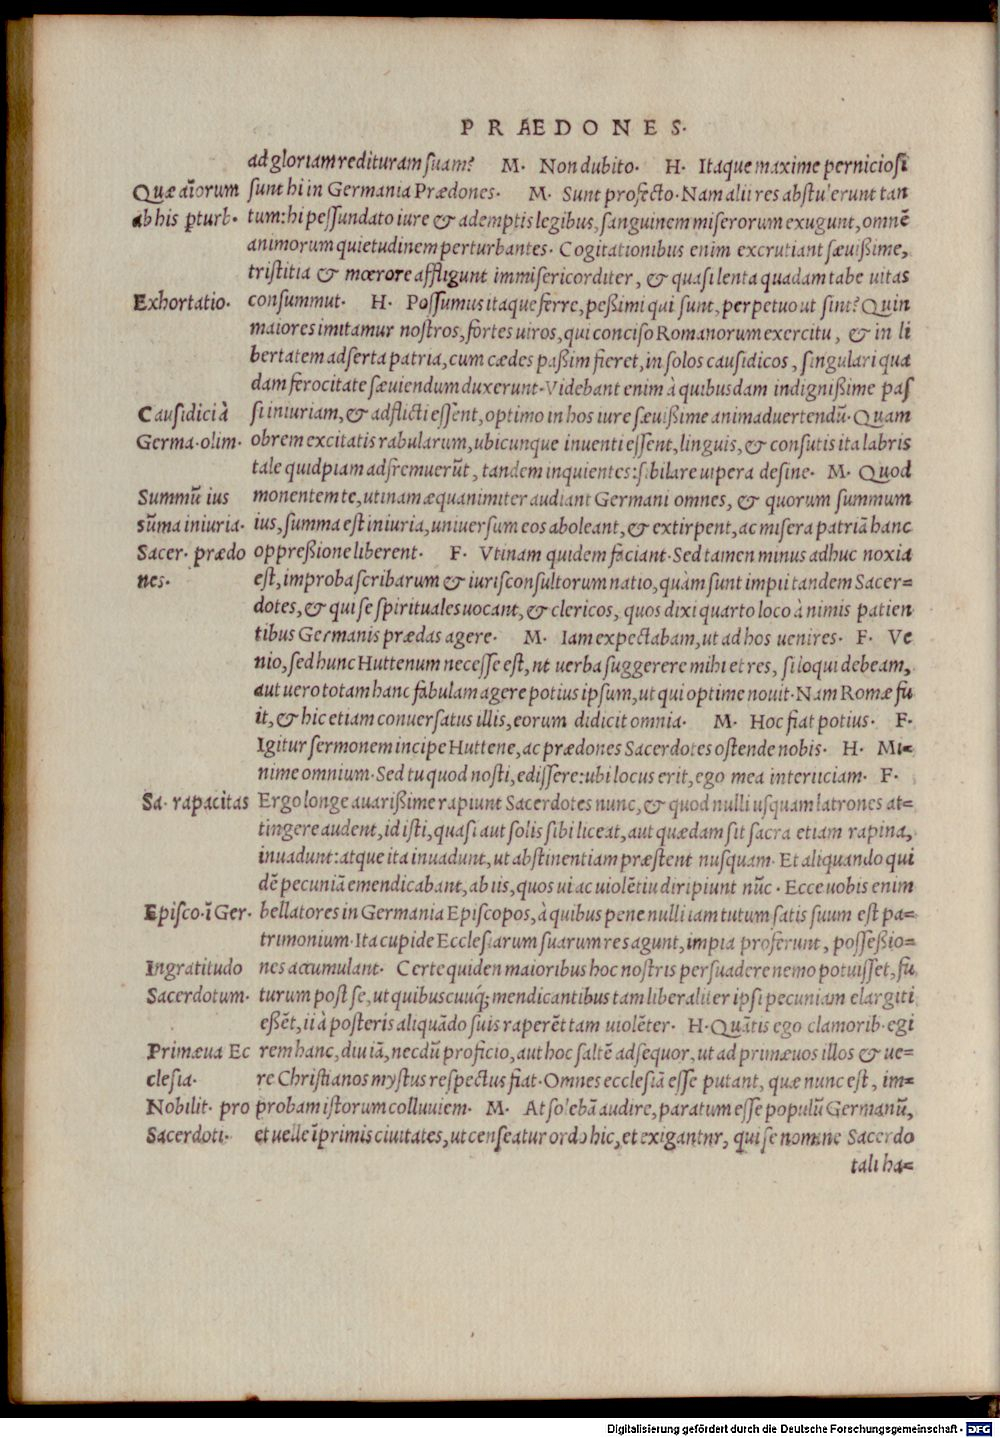 PRÆDONES.
ad gloriam redituram suam? M. Non dubito. H. Itaque maxime perniciosi
Quæ aĩorum sunt hi in Germania Prædones. M. Sunt profecto. Nam alii res abstulerunt tan
ab his ꝑturb. tum: hi pessundato iure & ademptis legibus, sanguinem miserorum exugunt, omnẽ
animorum quietudinem perturbantes. Cogitationibus enim excrutiant sæuißime,
tristitia & mœrore affligunt immisericorditer, & quasi lenta quadam tabe uitas
Exhortatio. consummut. H. Possumus itaque ferre, peßimi qui sunt, perpetuo ut sint? Quin
maiores imitamur nostros, fortes uiros, qui conciso Romanorum exercitu, & in li
bertatem adserta patria, cum cædes paßim fieret, in solos causidicos, singulari qua
dam ferocitate sæuiendum duxerunt. Videbant enim à quibusdam indignißime pas
Causidici à si iniuriam, & adflicti essent, optimo in hos iure sæuißime animaduertendũ. Quam
Germa. olim. obrem excitatis rabularum, ubicunque inuenti essent, linguis, & consutis ita labris
tale quidpiam adfremuerũt, tandem inquientes: sibilare uipera desine. M. Quod
Summũ ius monentem te, utinam æquanimiter audiant Germani omnes, & quorum summum
sũma iniuria. ius, summa est iniuria, uniuersum eos aboleant, & extirpent, ac misera patriã hanc
Sacer. prædo oppreßione liberent. F. Vtinam quidem faciant. Sed tamen minus adhuc noxia
nes. est, improba scribarum & iurisconsultorum natio, quàm sunt impii tandem Sacer=
dotes, & qui se spirituales uocant, & clericos, quos dixi quarto loco à nimis patien
tibus Germanis prædas agere. M. Iam expectabam, ut ad hos uenires. F. Ve
nio, sed hunc Huttenum necesse est, nt uerba suggerere mihi et res, si loqui debeam,
aut uero totam hanc fabulam agere potius ipsum, ut qui optime nouit. Nam Romæ fu
it, & hic etiam conuersatus illis, eorum didicit omnia. M. Hoc fiat potius. F.
Igitur sermonem incipe Huttene, ac prædones Sacerdotes ostende nobis. H. Mi=
nime omnium. Sed tu quod nosti, edissere: ubi locus erit, ego mea interiiciam. F.
Sa. rapacitas Ergo longe auarißime rapiunt Sacerdotes nunc, & quod nulli usquam latrones at=
tingere audent, id isti, quasi aut solis sibi liceat, aut quædam sit sacra etiam rapina,
inuadunt: atque ita inuadunt, ut abstinentiam præstent nusquam. Et aliquando qui
dẽ pecuniã emendicabant, ab iis, quos ui ac uiolẽtiu diripiunt nũc. Ecce uobis enim
Episco. ĩ Ger. bellatores in Germania Episcopos, à quibus pene nulli iam tutum satis suum est pa=
trimonium. Ita cupide Ecclesiarum suarum res agunt, impia proferunt, possessio=
Ingratitudo nes accumulant. Certe quiden maioribus hoc nostris persuadere nemo potuisset, fu
Sacerdotum. turum post se, ut quibuscuuq́; mendicantibus tam liberaliter ipsi pecuniam elargiti
eßẽt, ii à posteris aliquãdo suis raperẽt tam uiolẽter. H. Quãtis ego clamorib. egi
Primæua Ec rem hanc, diu iã, necdũ proficio, aut hoc saltẽ adsequor, ut ad primæuos illos & ue=
clesia. re Christianos mystus respectus fiat. Omnes ecclesiã esse putant, quæ nunc est, im=
Nobilit. pro probam istorum colluuiem. M. At solebã audire, paratum esse populũ Germanũ,
Sacerdoti. et uelle ĩprimis ciuitates, ut censeatur ordo hic, et exigantnr, qui se nomine Sacerdo
tali ha=
Digitalisierung gefördert durch die Deutsche Forschungsgemeinschaft - DFG